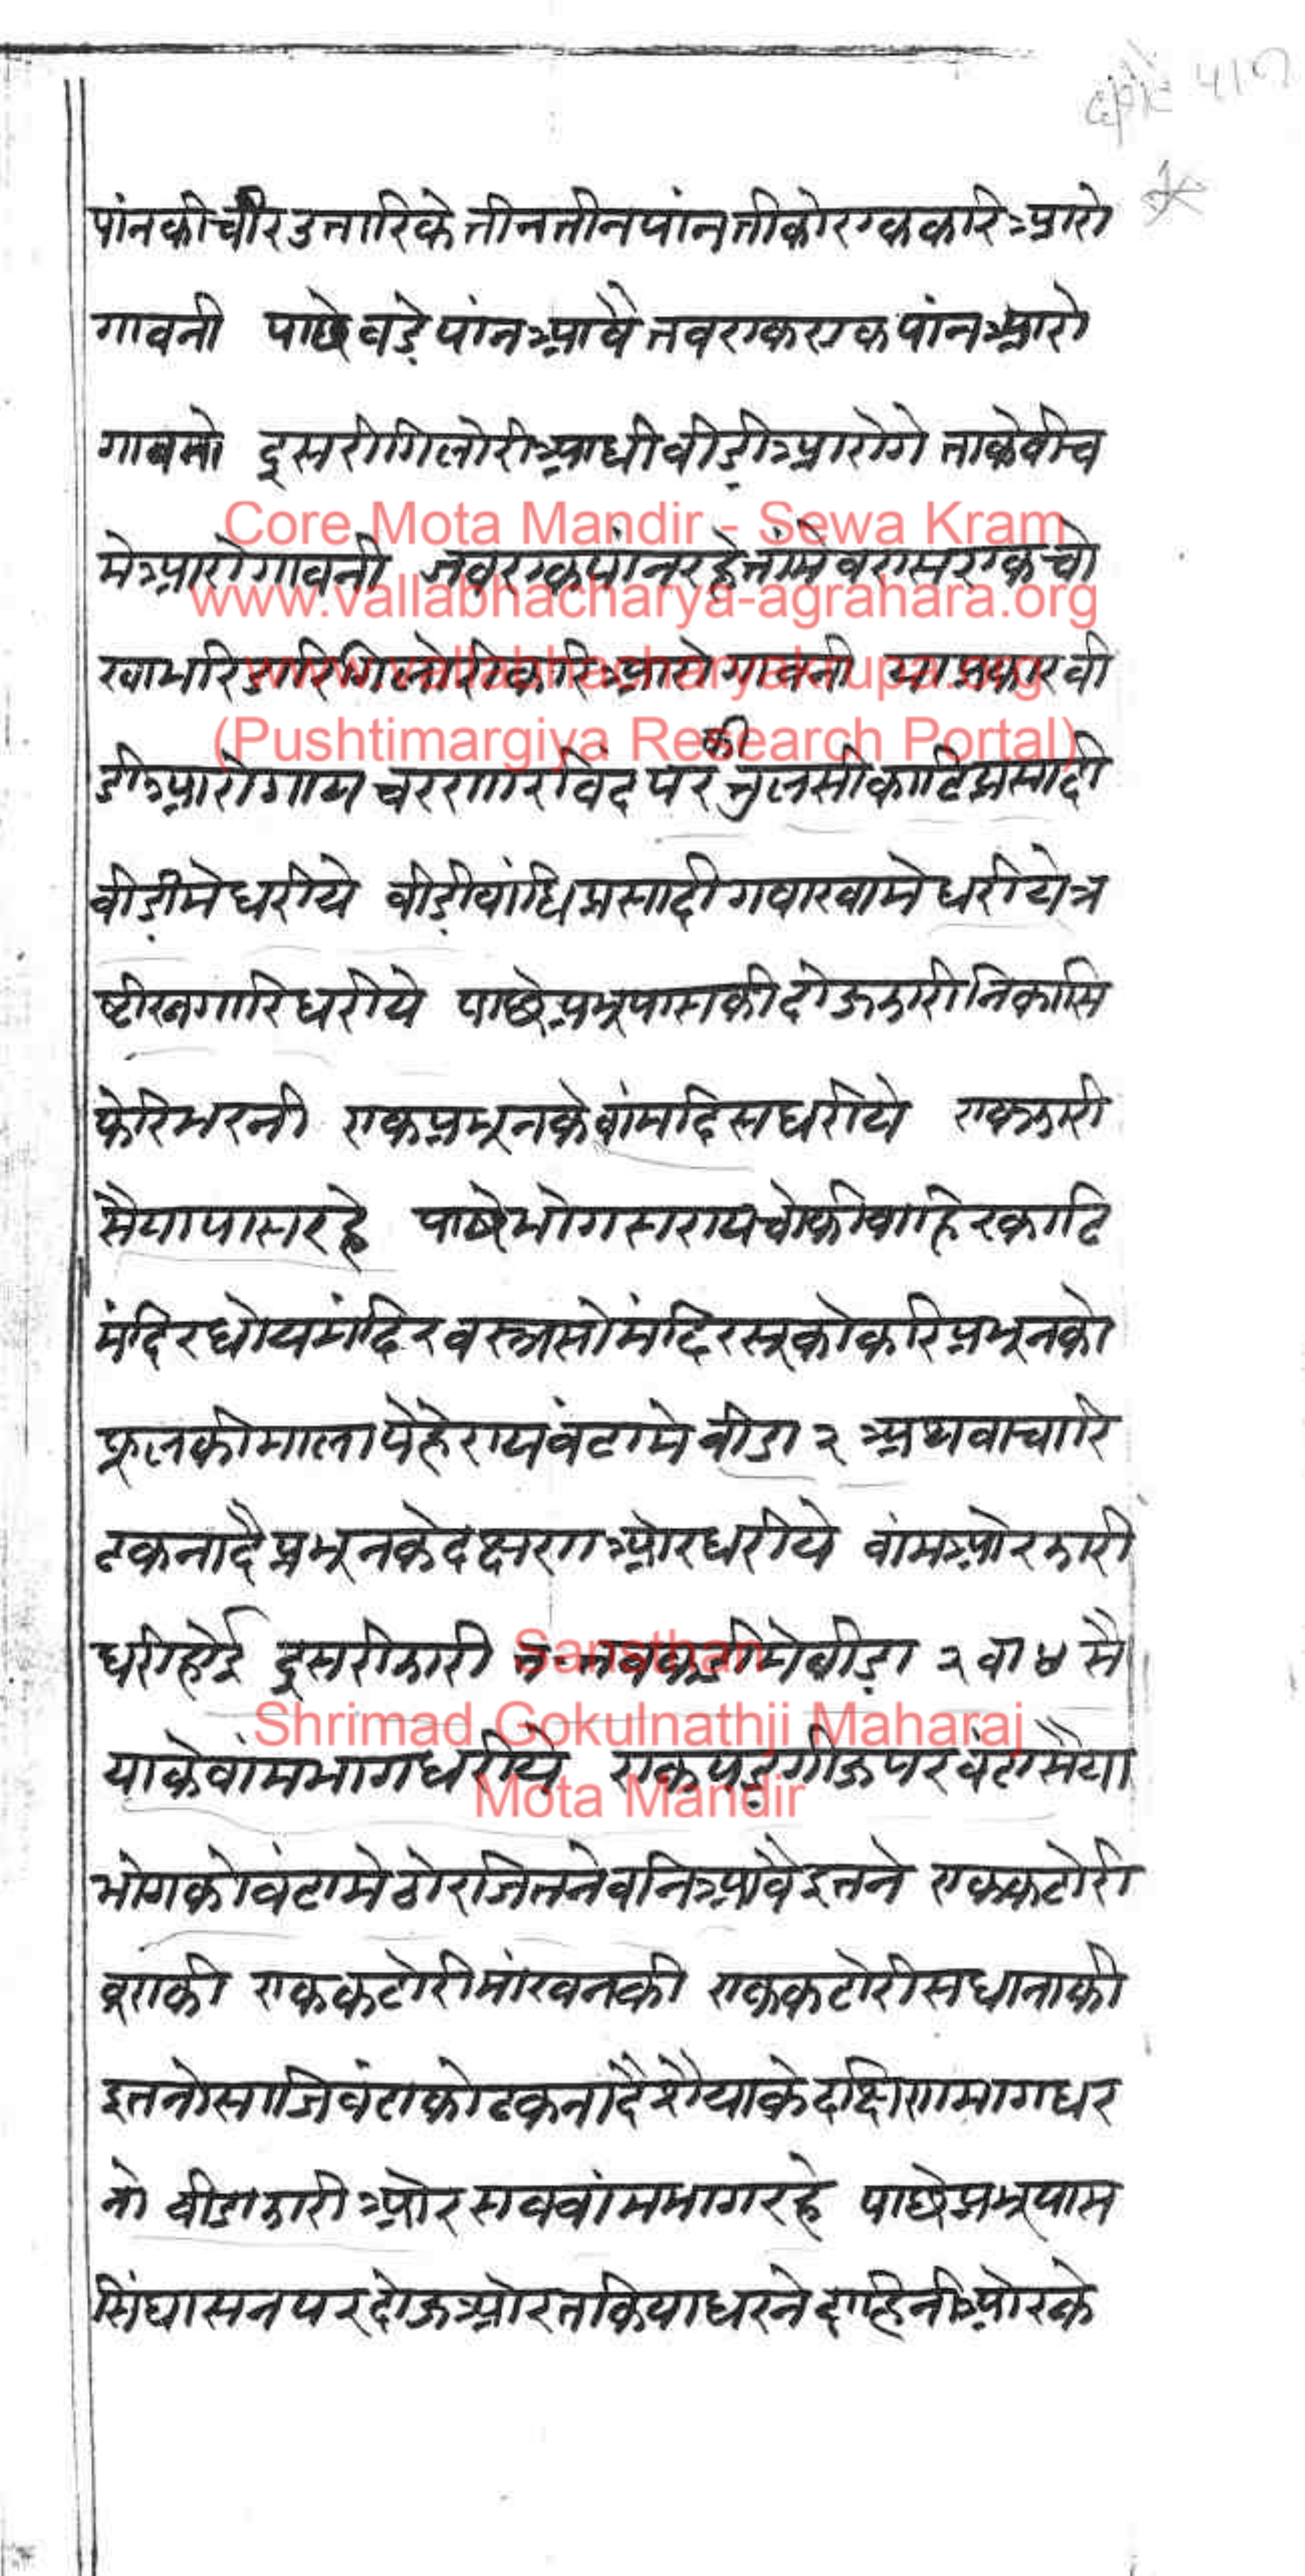 पांनकीचीरउतारिकेतीनतीनपांनतीकोरएककरिआरो
गावनी पाछेवडेपांनआवैतवएकएकपांनआरो
गावनो दूसरीगिलोरीआधीवीडीआरोगेताकेवीच
मेआरोगावनी जवएकपांनरहेतांमेवराासएकचो
खाभरिडारिगिलोरीकरिआरोगावनी याप्रकारवी
डीआरोगायचरणार्रविंदपरकीतुलसीकाढिप्रसादी
वीडीमेधरीये वीडीवांधिप्रसादीगवाखामेधरीयेत्र
ष्टीखगारिधरीये पाछेप्रभूपासकीदोऊझारीनिकासि
फेरिभरनी एकप्रभूनकेवांमदिसधरीये एकझारी
सैयापासरहे पाछेभोगसरायचोकीवाहिरकाढि
मंदिरधोयमंदिरवस्त्रसोंमंदिरसूकोकरिप्रभूनको
फूलकीमालापेहेरायवंटामेवीडा २ अथवाचारि
ढकनादैप्रभूनकेदक्षणओरधरीये वांमओरझारी
धरीहोई दूसरीझारी तवकडीमेवीडा २ वा ४ सै
याकेवांमभागधरीये एकपडगीऊपरवंटासैया
भोगकोवंटामेठोरजितनेवनिआवैइतने एककटोरी
वूराकी एककटोरीमांखनकी एककटोरीसधानाकी
इतनोसाजिवंटाकोढकनादैशैयाकेदक्षिणभागधर
नो वीडाझारीओरसववांमभागरहे पाछेप्रभूपास
सिंघासनपरदोऊओरतकियाधरनेदाहिनीओरके
Core Mota Mandir - Sewa Kram
www.vallabhacharya-agrahara.org
www.vallabhacharyakrupa.org
(Pushtimargiya Research Portal)
Sansthan
Shrimad Gokulnathji Maharaj
Mota Mandir